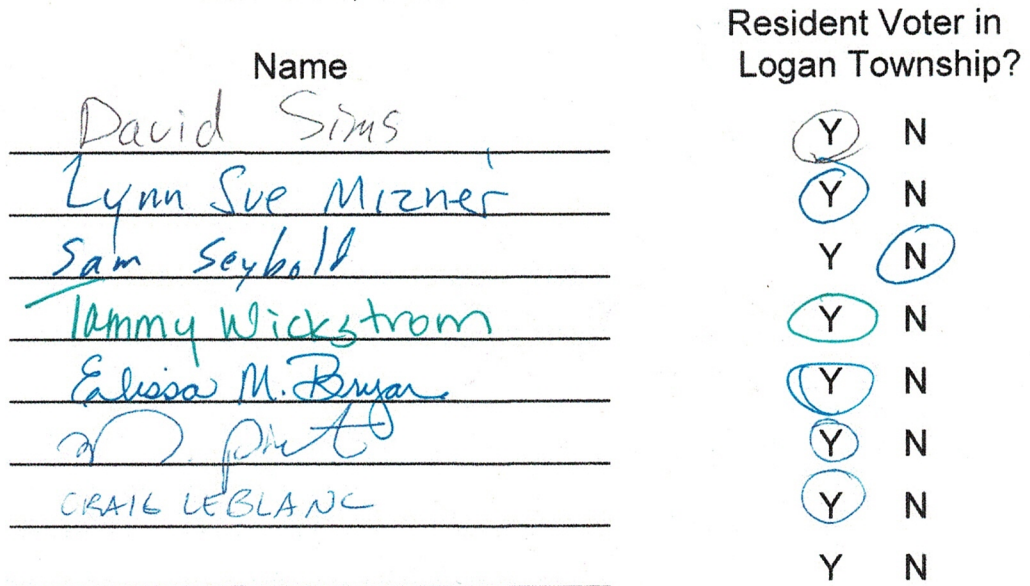 Name
Resident Voter in
Logan Township?
David Sims Y N
Lynn Sue Mizner Y N
Sam Seybold Y N
Tammy Wickstrom Y N
Ealissa M. Bryan Y N
Y N
CRAIG LEBLANC Y N
Y N